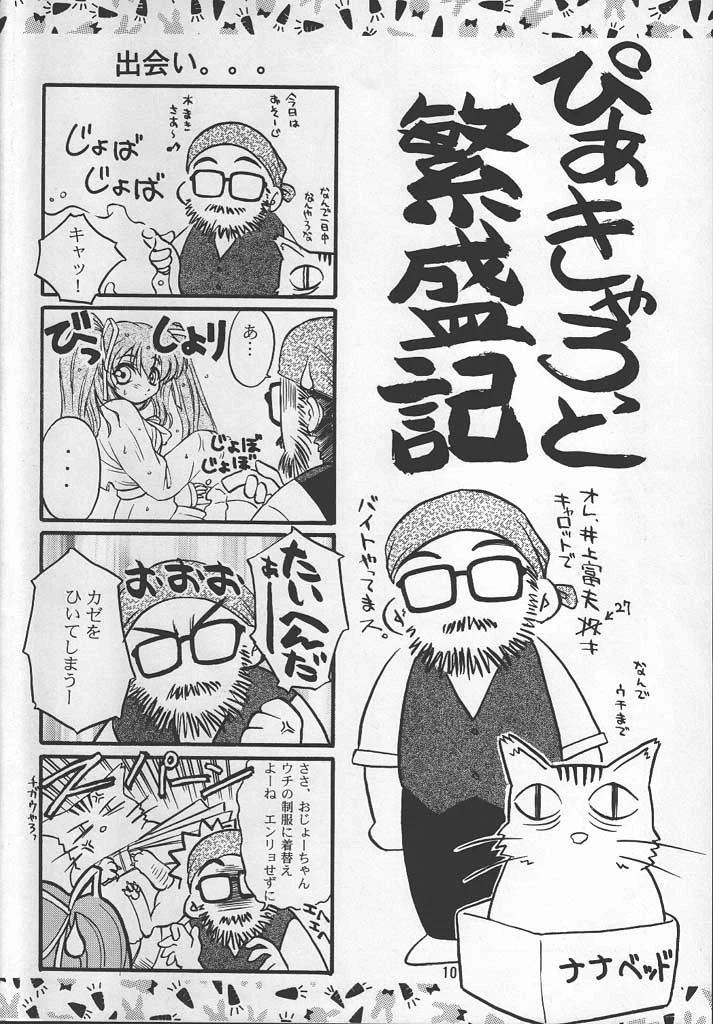 ぴあきゃろっと
繁盛記
オレ、井上富夫
27才
キャロットで
バイトやってまス。
なんで
ウチまで
ナナベッド
10
出会い。。。
今日は
おそーじ
水まき
さあ~♪
じょば
じょば
なんで一日中
なんやろな
キャッ!
あ…
じょり
びっ
じょぼ
じょぼ
・・・
たいへんだ
あぁー
おおお
カゼを
ひいてしまうー
スパーン
ささ、おじょーちゃん
ウチの制服に着替え
よーね エンリョせずに
チガウやろ
エヘ
エヘ